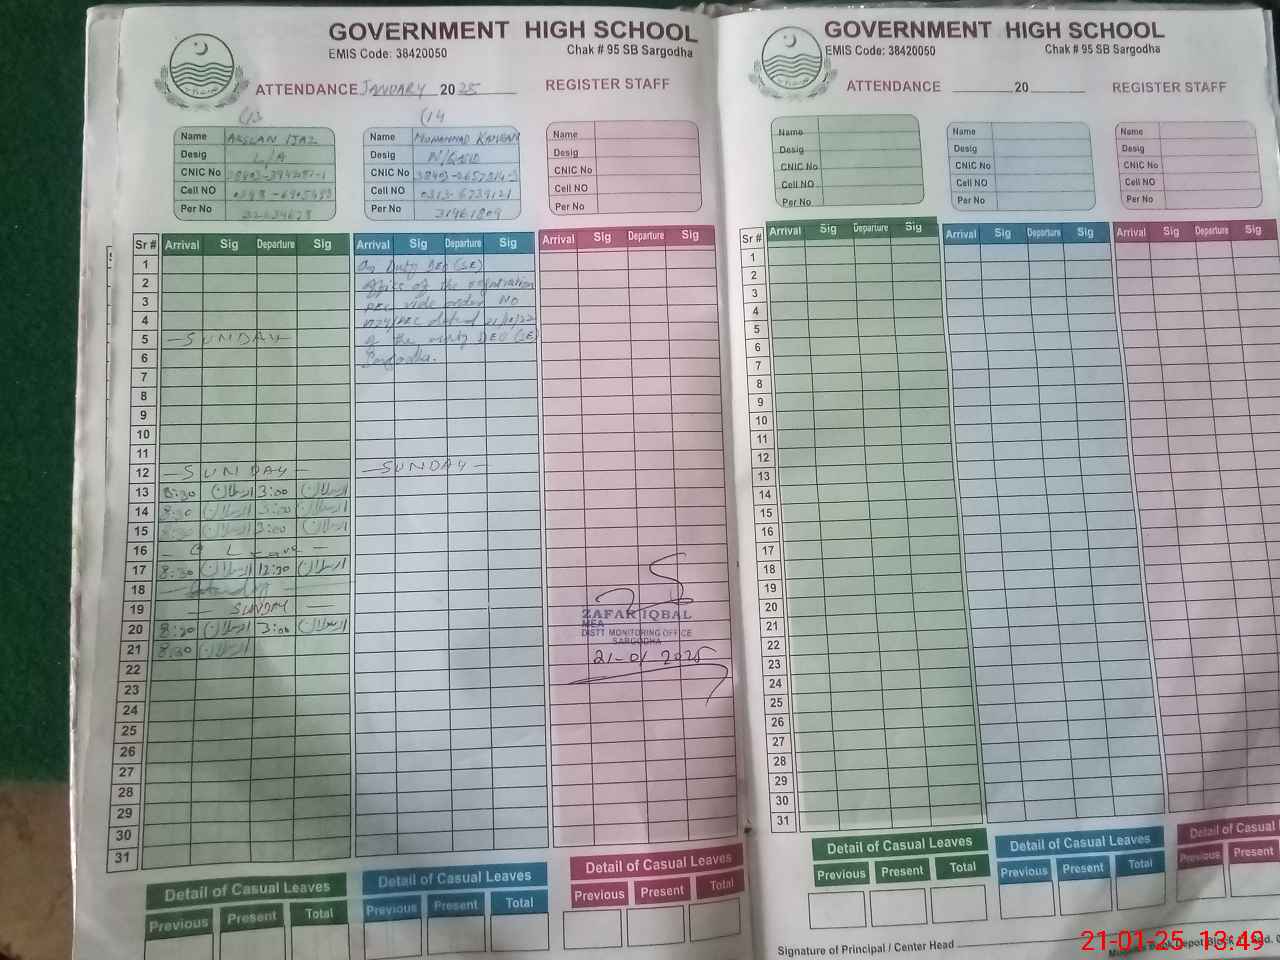 GOVERNMENT HIGH SCHOOL
EMIS Code: 38420050 Chak # 95 SB Sargodha
ATTENDANCE JANUARY 2025 REGISTER STAFF
(13 (14
Name ARSLAN IJAZ Name MUHAMMAD KAMRAN Name
Desig L/A Desig N/QASID Desig
CNIC No CNIC No CNIC No
Cell NO Cell NO 0313-6739121 Cell NO
Per No 32634678 Per No 31961809 Per No
Sr # Arrival Sig Departure Sig Arrival Sig Departure Sig Arrival Sig Departure Sig
1 On Duty DEO (SE)
2 office of the
3 PEC vide order NO
4 dated
5 SUNDAY of the DEO (SE)
6 Sargodha.
7
8
9
10
11
12 SUNDAY SUNDAY
13 8:30 ارسلان 3:00 ارسلان
14 8:30 ارسلان 3:00 ارسلان
15 8:30 ارسلان 3:00 ارسلان
16 C Leave
17 8:30 ارسلان 12:30 ارسلان
18 Saturday
19 SUNDAY
20 8:30 ارسلان 3:00 ارسلان
21 8:30 ارسلان
22
23
24
25
26
27
28
29
30
31
ZAFAR IQBAL
MEA
DISTT MONITORING OFFICE
SARGODHA
21-01-2025
Detail of Casual Leaves Detail of Casual Leaves Detail of Casual Leaves
Previous Present Total Previous Present Total Previous Present Total
GOVERNMENT HIGH SCHOOL
EMIS Code: 38420050 Chak # 95 SB Sargodha
ATTENDANCE 20 REGISTER STAFF
Name Name Name
Desig Desig Desig
CNIC No CNIC No CNIC No
Cell NO Cell NO Cell NO
Per No Per No Per No
Sr # Arrival Sig Departure Sig Arrival Sig Departure Sig Arrival Sig Departure Sig
1
2
3
4
5
6
7
8
9
10
11
12
13
14
15
16
17
18
19
20
21
22
23
24
25
26
27
28
29
30
31
Detail of Casual Leaves Detail of Casual Leaves Detail of Casual
Previous Present Total Previous Present Total Previous Present
Signature of Principal / Center Head
Book Depot Block
21-01-25 13:49